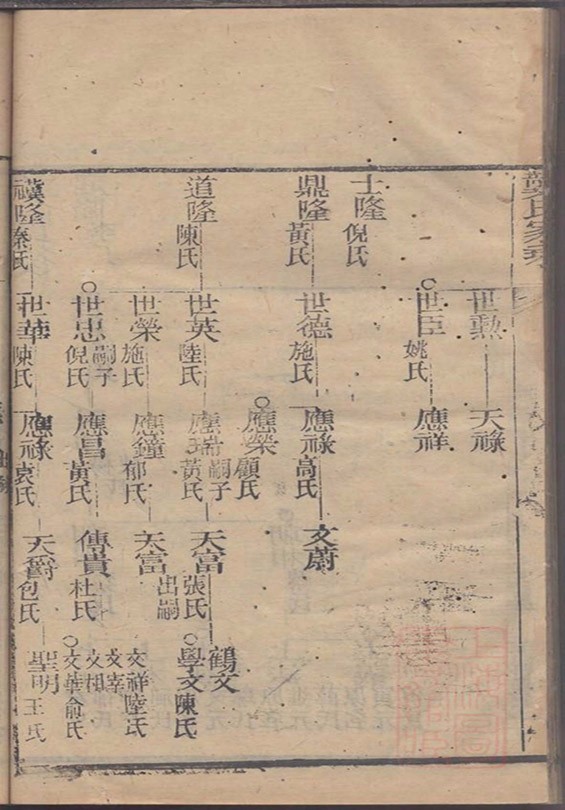 龔氏家乘
世勲
天祿
世臣
姚氏
應祥
士隆
倪氏
鼎隆
黃氏
世德
施氏
應祿
高氏
文蔚
應榮
顧氏
道隆
陳氏
世英
陸氏
應瑞
嗣子
黃氏
天富
張氏
出嗣
鶴文
學文
陳氏
世榮
施氏
應鐘
郁氏
天富
文祥
陸氏
世忠
嗣子
倪氏
應昌
黃氏
傳貴
杜氏
文華
俞氏
禥隆
秦氏
世華
陳氏
應祿
袁氏
天爵
包氏
聖明
王氏